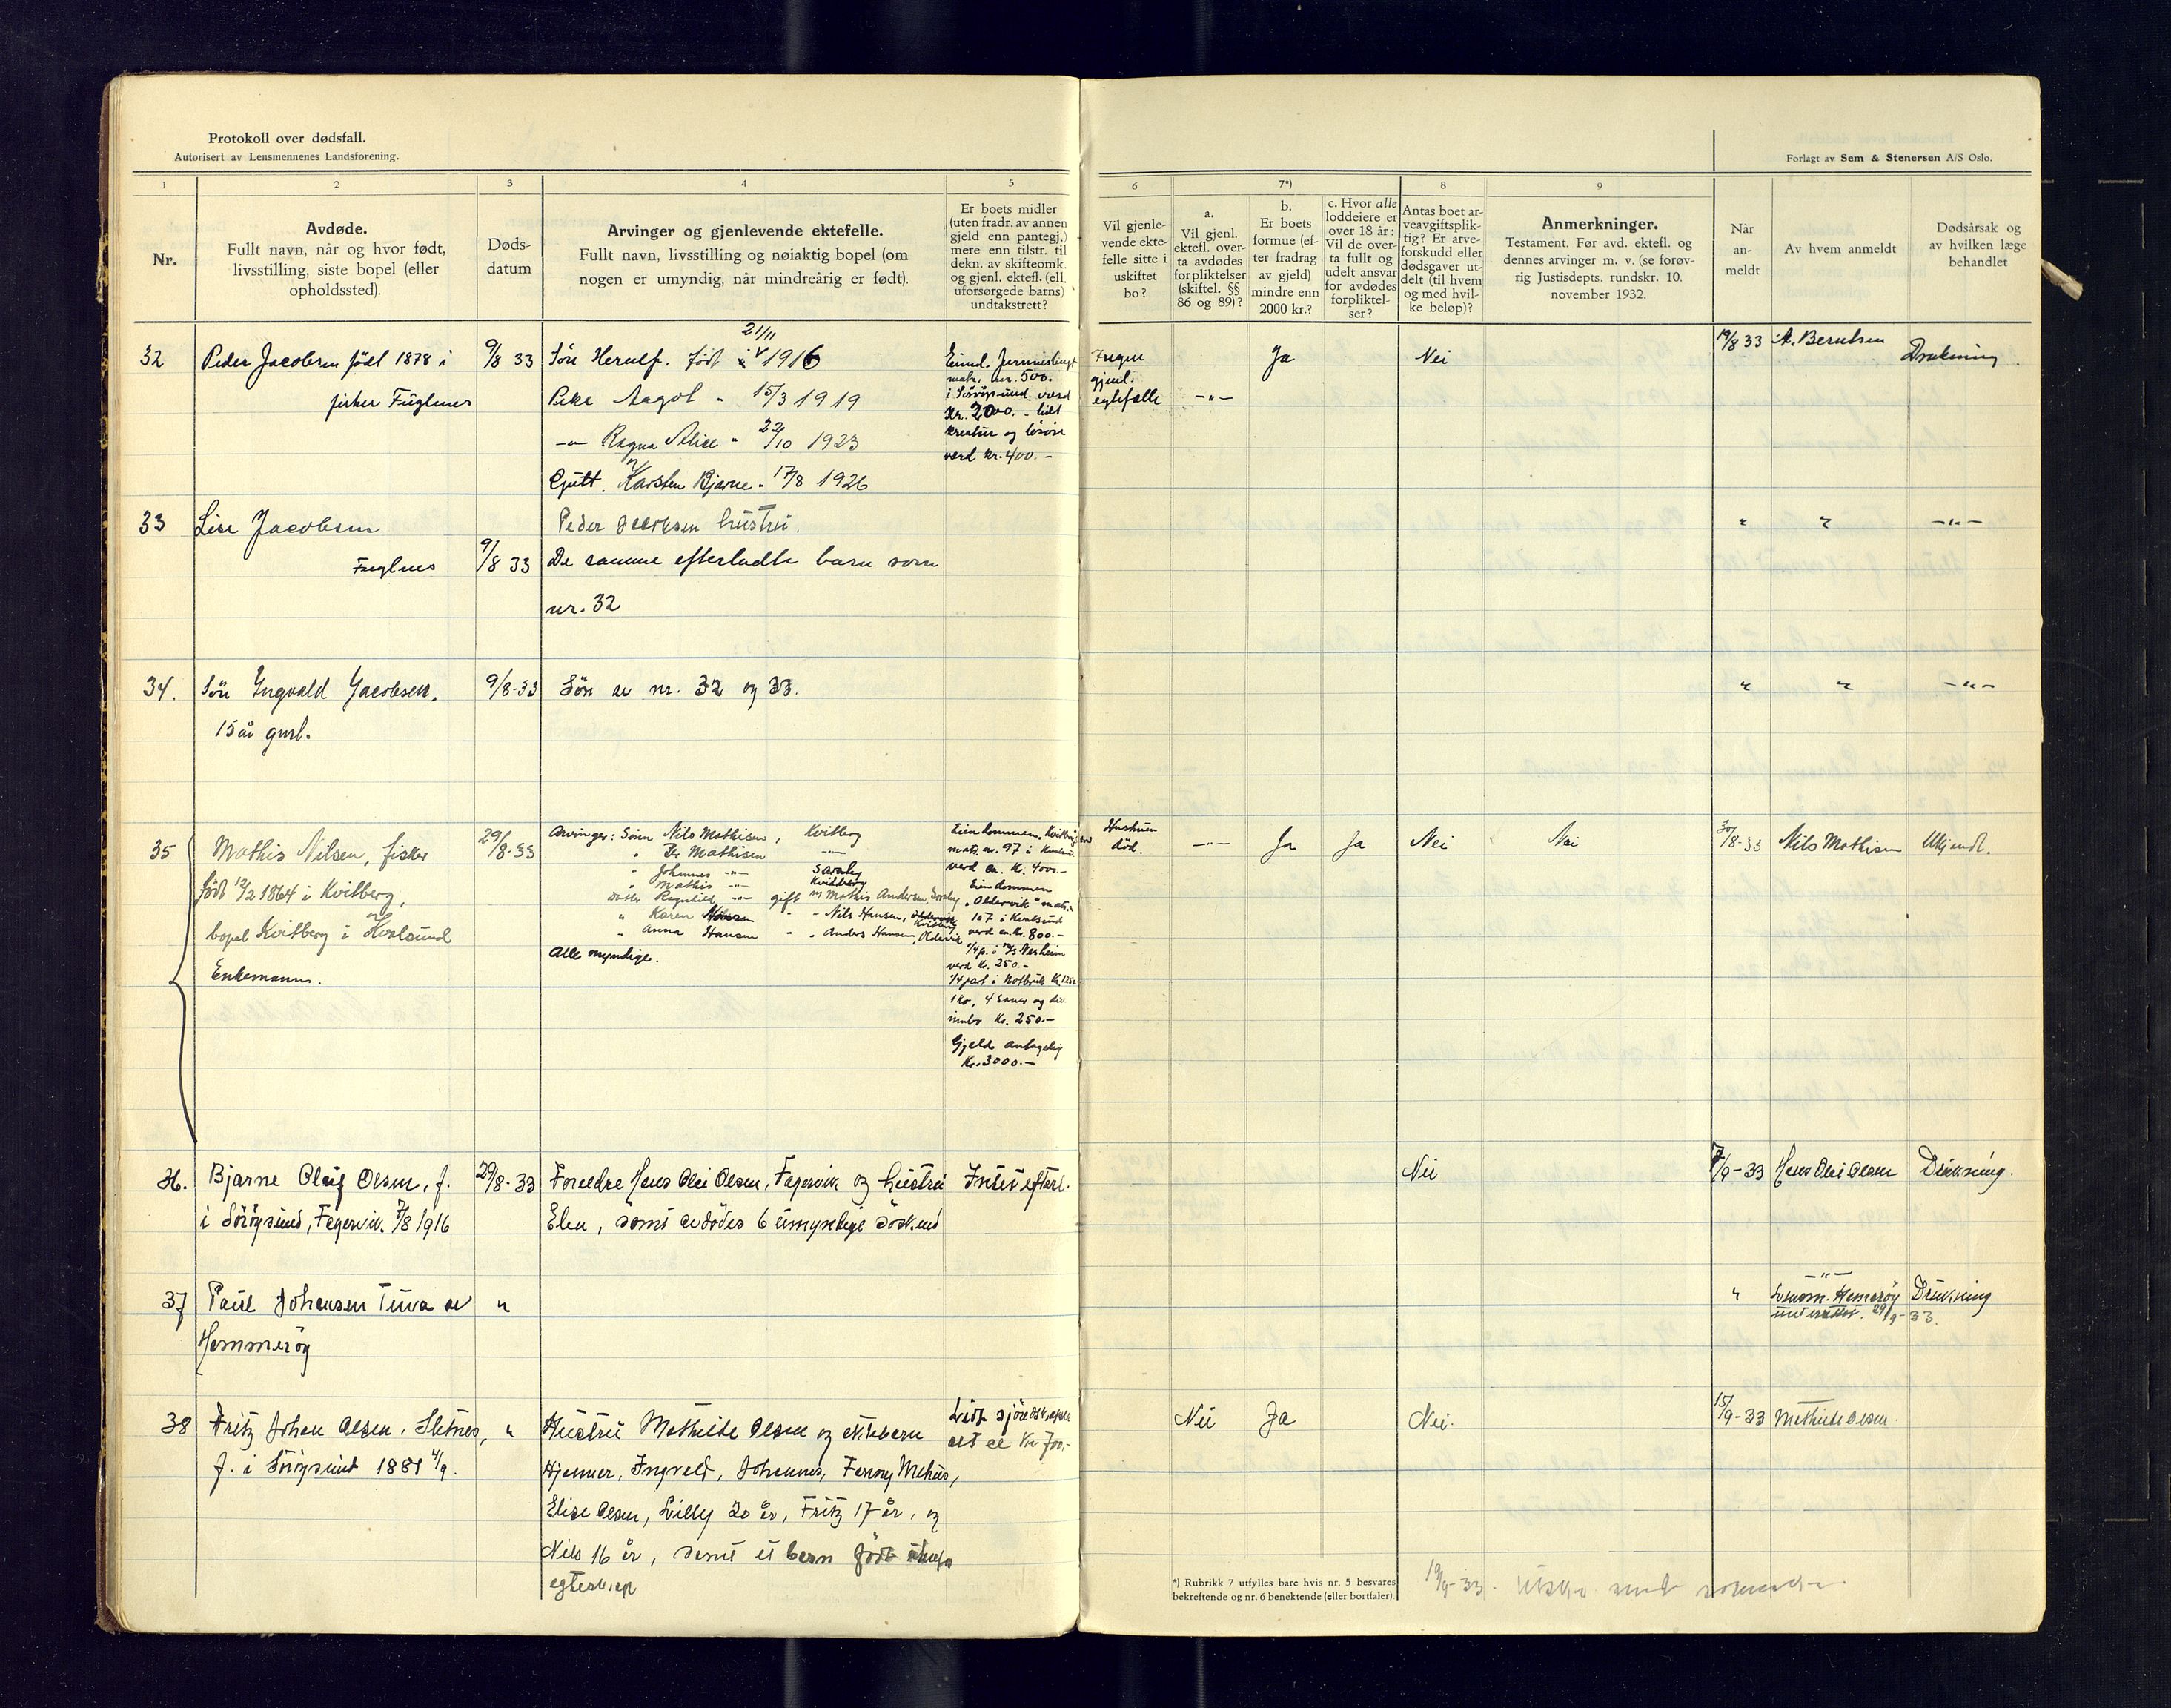 Protokoll over dødsfall.
Autorisert av Lensmennenes Landsforening.
Forlagt av Sem & Stenersen A/S Oslo.
1
2
3
4
5
6
7*)
8
9
Nr.
Avdøde.
Fullt navn, når og hvor født,
livsstilling, siste bopel (eller
opholdssted).
Døds-
datum
Arvinger og gjenlevende ektefelle.
Fullt navn, livsstilling og nøiaktig bopel (om
nogen er umyndig, når mindreårig er født).
Er boets midler
(uten fradr. av annen
gjeld enn pantegj.)
mere enn tilstr. til
dekn. av skifteomk.
og gjenl. ektefl. (ell.
uforsørgede barns)
undtakstrett?
Vil gjenle-
vende ekte-
felle sitte i
uskiftet
bo?
a.
Vil gjenl.
ektefl. over-
ta avdødes
forpliktelser
(skiftel. §§
86 og 89)?
b.
Er boets
formue (ef-
ter fradrag
av gjeld)
mindre enn
2000 kr.?
c. Hvor alle
loddeiere er
over 18 år:
Vil de over-
ta fullt og
udelt ansvar
for avdødes
forpliktel-
ser?
Antas boet ar-
veavgiftsplik-
tig? Er arve-
forskudd eller
dødsgaver ut-
delt (til hvem
og med hvil-
ke beløp)?
Anmerkninger.
Testament. Før avd. ektefl. og
dennes arvinger m. v. (se forøv-
rig Justisdepts. rundskr. 10.
november 1932.
Når
an-
meldt
Av hvem anmeldt
Dødsårsak og
av hvilken læge
behandlet
32
Peder Jacobsen født 1878 i
fisker Fuglnes
9/8 33
21/11
Søn Herulf. født 1916
Pike Aagot - 15/3 1919
-"- Ragna Alice - 22/10 1923
Gutt. Karsten Bjarne - 17/8 1926
matr. nr. 500.
i Sörøysund verd
Kr. 2000. - litt
kreatur og lösöre
verd kr. 400.-
Ingen
gjenl.
egtefælle
-"-
Ja
Nei
19/8 33
A. Berntsen
Drukning
33
Lise Jacobsen
Fuglnes
9/8 33
Peder Jacobsen hustru.
De samme efterladte barn som
nr. 32
"
"
-"-
34.
Søn Ingvald Jacobsen.
15 år gml.
9/8-33
Søn av nr. 32 og 33.
"
"
-"-
35
Mathis Nilsen, fisker
født 13/2 1864 i Kvitberg,
bopel Kvitberg i Kvalsund
Enkemann.
29/8-33
Arvinger: Sönn Nils Mathisen, Kvitberg
" Per Mathisen -"-
" Johannes -"- Saraby
" Mathis -"- Kvitberg
Datter Ragnhild -"- gift m Mathis Andersen, Saraby
" Karen Hansen - - Nils Hansen, Oldervik Kvitberg
" Anna Hansen " " Anders Hansen, Oldervik
Alle myndige.
Eiendommen Kvitberg
matr. nr. 97 i Kvalsund
verd ca. Kr. 400.-
Eiendommen
"Oldervik" matr.
107 i Kvalsund
verd ca. Kr. 800.-
1/4 p. i M/S Nesheim
verd Kr. 250.-
1/4 part i Notbruk Kr. 1250
1 Ko, 4 Sauer og div
innbo Kr. 250.-
Gjeld antagelig
Kr. 3000.-
Hustruen
död.
-"-
Ja
Ja
Nei
Nei
30/8-33
Nils Mathisen
Ukjendt.
36.
Bjarne Oluf Olsen, f.
i Sörøysund, Fagervik. 7/8 1916
29/8-33
Foreldre Hans Olai Olsen, Fagervik og hustru
Elen, samt avdødes 6 umyndige søsken
Intet efterl.
Nei
7/9-33
Hans Olai Olsen
Drukning.
37
Paul Johansen Tuva av
Hammerøy
"
"
-"-
Lensm. Hamerøy
underrettet. 29/9-33.
Drukning
38
Fritz Johan Olsen, Sletnes,
f. i Sörøysund 1881 4/9.
"
Hustru Mathilde Olsen og ektebarn
Hjalmer, Ingvald, Johannes, Fanny Mehus,
Elise Olsen, Lilly 20 år, Fritz 17 år, og
Nils 16 år, samt et barn født utenfor
egteskap
alt ca Kr 700.-
Nei
Ja
Nei.
15/9-33
Mathilde Olsen.
*) Rubrikk 7 utfylles bare hvis nr. 5 besvares
bekreftende og nr. 6 benektende (eller bortfaler).
19/9-33.